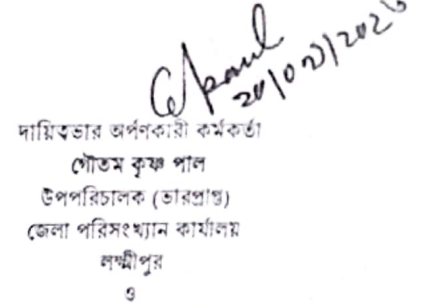 GKpaul
দায়িত্বভার অর্পণকারী কর্মকর্তা
গৌতম কৃষ্ণ পাল
উপপরিচালক (ভারপ্রাপ্ত)
জেলা পরিসংখ্যান কার্যালয়
লক্ষ্মীপুর
ও